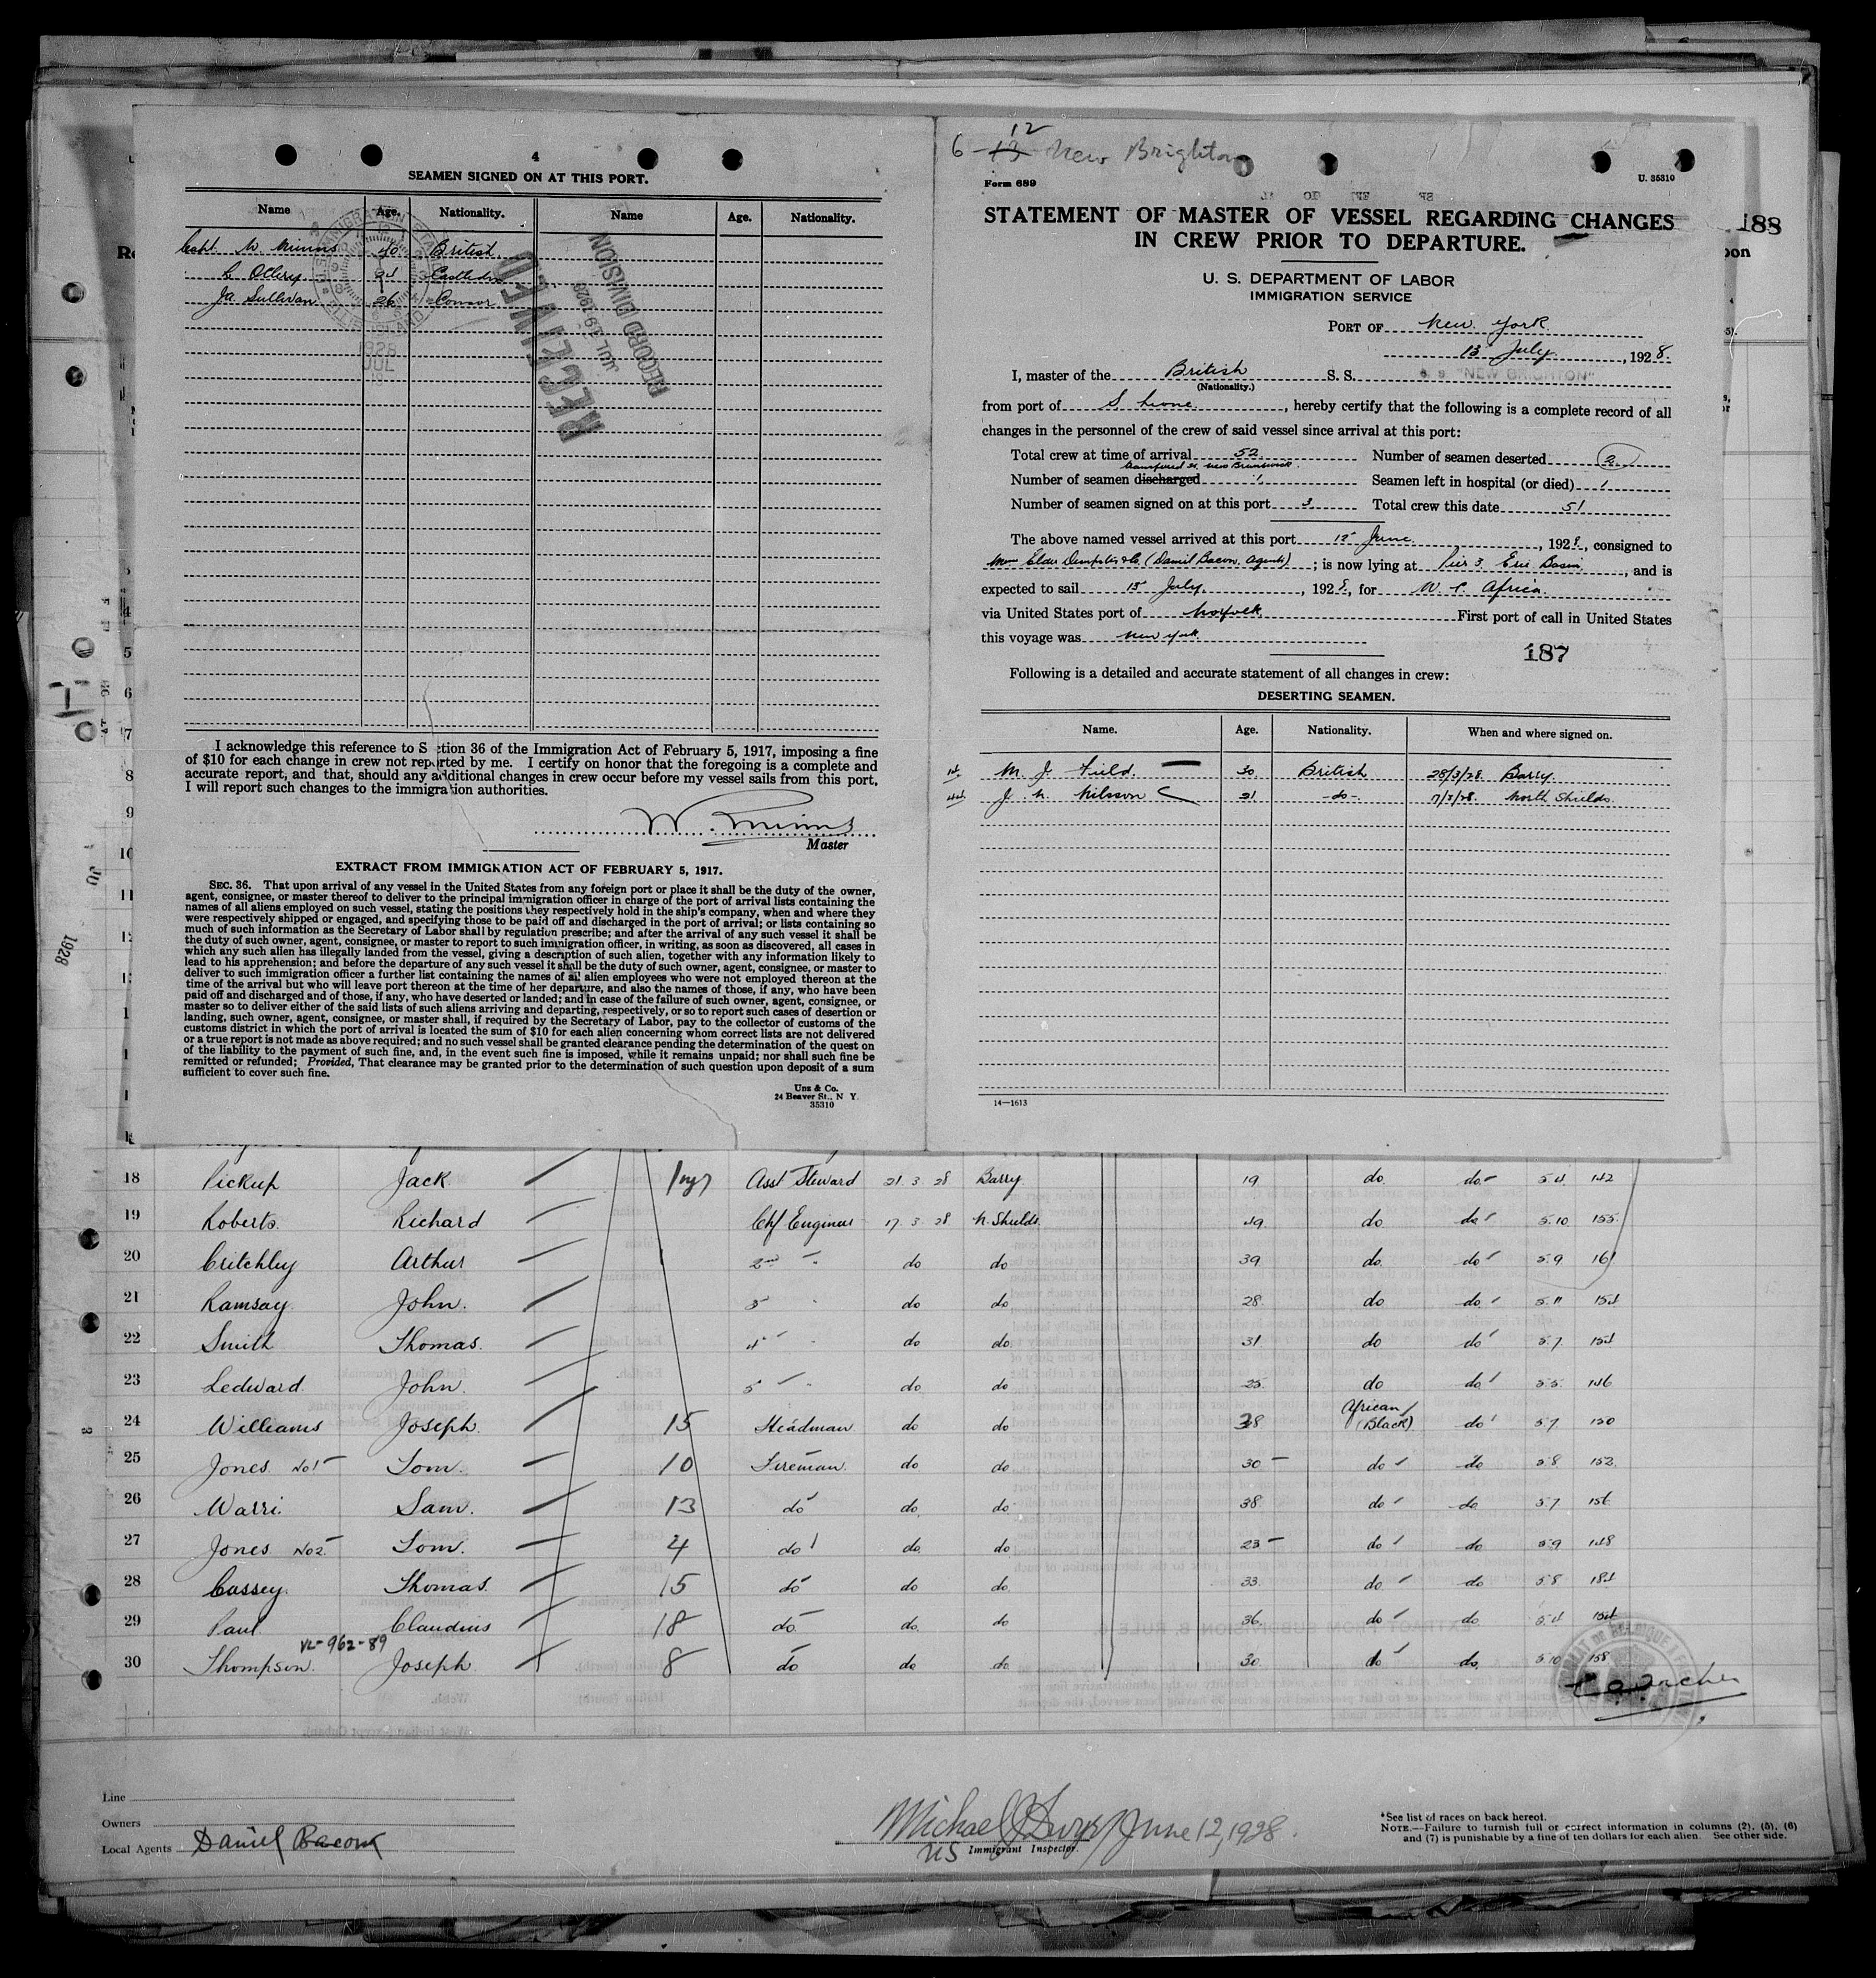 4
SEAMEN SIGNED ON AT THIS PORT.
Name Age. Nationality. Name Age. Nationality.
Capt. W. Minns 40 British
24
Ja. Sullivan 26
RECEIVED
JUL 19 1928
RECORD DIVISION
1928
JUL
I acknowledge this reference to Section 36 of the Immigration Act of February 5, 1917, imposing a fine
of $10 for each change in crew not reported by me. I certify on honor that the foregoing is a complete and
accurate report, and that, should any additional changes in crew occur before my vessel sails from this port,
I will report such changes to the immigration authorities.
W. Minns
Master
EXTRACT FROM IMMIGRATION ACT OF FEBRUARY 5, 1917.
SEC. 36. That upon arrival of any vessel in the United States from any foreign port or place it shall be the duty of the owner,
agent, consignee, or master thereof to deliver to the principal immigration officer in charge of the port of arrival lists containing the
names of all aliens employed on such vessel, stating the positions they respectively hold in the ship's company, when and where they
were respectively shipped or engaged, and specifying those to be paid off and discharged in the port of arrival; or lists containing so
much of such information as the Secretary of Labor shall by regulation prescribe; and after the arrival of any such vessel it shall be
the duty of such owner, agent, consignee, or master to report to such immigration officer, in writing, as soon as discovered, all cases in
which any such alien has illegally landed from the vessel, giving a description of such alien, together with any information likely to
lead to his apprehension; and before the departure of any such vessel it shall be the duty of such owner, agent, consignee, or master to
deliver to such immigration officer a further list containing the names of all alien employees who were not employed thereon at the
time of the arrival but who will leave port thereon at the time of her departure, and also the names of those, if any, who have been
paid off and discharged and of those, if any, who have deserted or landed; and in case of the failure of such owner, agent, consignee, or
master so to deliver either of the said lists of such aliens arriving and departing, respectively, or so to report such cases of desertion or
landing, such owner, agent, consignee, or master shall, if required by the Secretary of Labor, pay to the collector of customs of the
customs district in which the port of arrival is located the sum of $10 for each alien concerning whom correct lists are not delivered
or a true report is not made as above required; and no such vessel shall be granted clearance pending the determination of the quest on
of the liability to the payment of such fine, and, in the event such fine is imposed, while it remains unpaid; nor shall such fine be
remitted or refunded; Provided, That clearance may be granted prior to the determination of such question upon deposit of a sum
sufficient to cover such fine.
Unz & Co.
24 Beaver St., N Y.
35310
6 - 13 12 New Brighton
Form 689
U. 35310
STATEMENT OF MASTER OF VESSEL REGARDING CHANGES
IN CREW PRIOR TO DEPARTURE.
188
U. S. DEPARTMENT OF LABOR
IMMIGRATION SERVICE
PORT OF New York
13 July, 1928.
I, master of the British S. S. S. S "NEW BRIGHTON"
(Nationality.)
from port of S. Leone, hereby certify that the following is a complete record of all
changes in the personnel of the crew of said vessel since arrival at this port:
Total crew at time of arrival 52. Number of seamen deserted 2
transferred ss. New Brunswick.
Number of seamen discharged 1 Seamen left in hospital (or died) 1
Number of seamen signed on at this port 3 Total crew this date 51
The above named vessel arrived at this port 12 June, 1928, consigned to
Elder Dempster & Co. (Daniel Bacon, Agents); is now lying at Pier 3 Erie Basin, and is
expected to sail 15 July, 1928, for W. C. Africa.
via United States port of Norfolk First port of call in United States
this voyage was New York
187
Following is a detailed and accurate statement of all changes in crew:
DESERTING SEAMEN.
Name. Age. Nationality. When and where signed on.
M. J. Field. 30 British 28/3/28 Barry.
J. N. Nilsson 21 -do- 17/3/28. North Shields
14—1613
18 Pickup Jack Asst Steward 21 3 28 Barry 19 do. do 5.4 142
19 Roberts. Richard Chf Engineer 17 3 28 N. Shields. 49 do do 5.10 155
20 Critchley Arthur 2nd " do do 39 do. do 5.9 161
21 Ramsay John. 3 " do do 28 do do 5.11 154
22 Smith Thomas. 4 " do do 31 do do 5.7 154
23 Ledward John. 5 " do do 25 do do 5.5 146
24 Williams Joseph. 15 Headman do do 38 African (Black) do 5.7 150
25 Jones No1 Tom. 10 Fireman. do do 30 do do 5.8 152
26 Warri. Sam. 13 do do do 38 do do 5.7 156
27 Jones No2 Tom. 4 do do do 23 do do 5.9 148
28 Cassey. Thomas. 15 do do do 33 do do 5.8 184
29 Paul Claudius 18 do do. do 36 do do 5.4 154
VL-962-89
30 Thompson. Joseph. 8 do do do 30 do do. 5.10 158
Line
Owners
Local Agents Daniel Bacon
Michael J Dwyer June 12, 1928.
US Immigrant Inspector.
*See list of races on back hereof.
NOTE.—Failure to furnish full or correct information in columns (2), (5), (6)
and (7) is punishable by a fine of ten dollars for each alien. See other side.